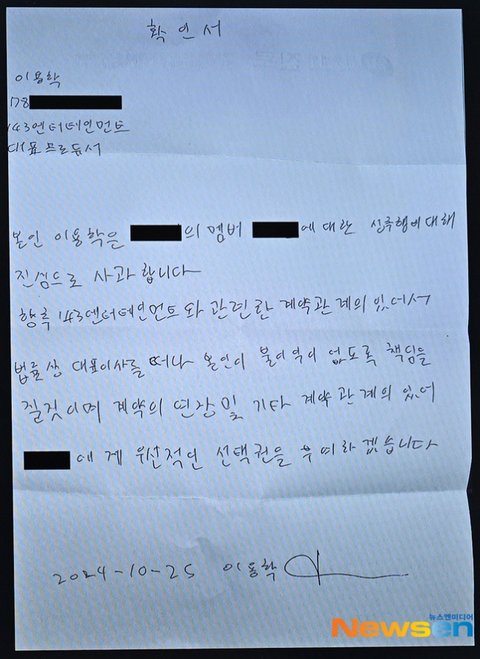 확인서
이용학
78
143엔터테인먼트
대표프로듀서
본인 이용학은 의 멤버 에 대한 성추행에 대해
진심으로 사과합니다
향후 143엔터테인먼트와 관련한 계약관계의 있어서
법률상 대표이사를 떠나 본인이 불이익이 없도록 책임을
질것이며 계약의 연장 및 기타 계약관계의 있어
에게 우선적인 선택권을 부여하겠습니다
2024-10-25 이용학
뉴스엔미디어
Newsen